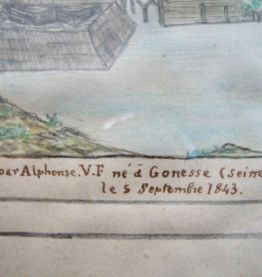 par Alphonse. V. F né à Gonesse (seine
le 5 Septembre 1843.